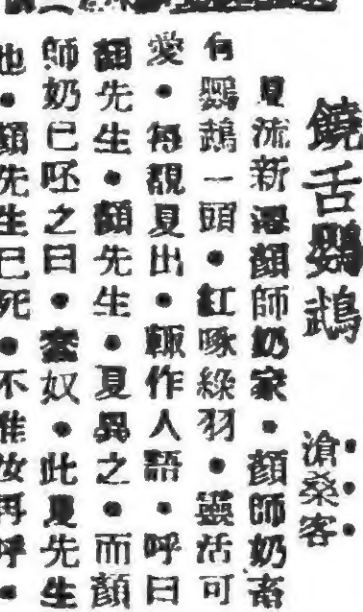 饒舌鸚鵡
滄桑客
夏流新寓顏師奶家•顏師奶畜
有鸚鵡一頭•紅啄綠羽•靈活可
愛•每覩夏出•輒作人語•呼曰
顏先生•顏先生•夏異之•而顏
師奶已呸之曰•蠢奴•此夏先生
也•顏先生已死•不惟汝再呼•